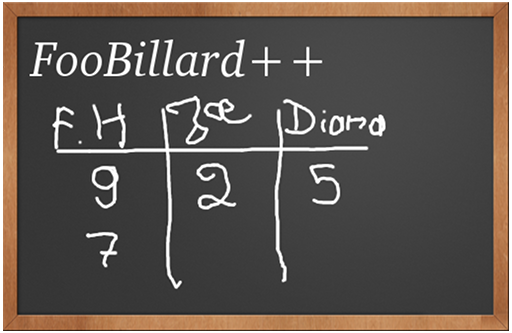 FooBillard++
F.H Joe Diana
9 2 5
7